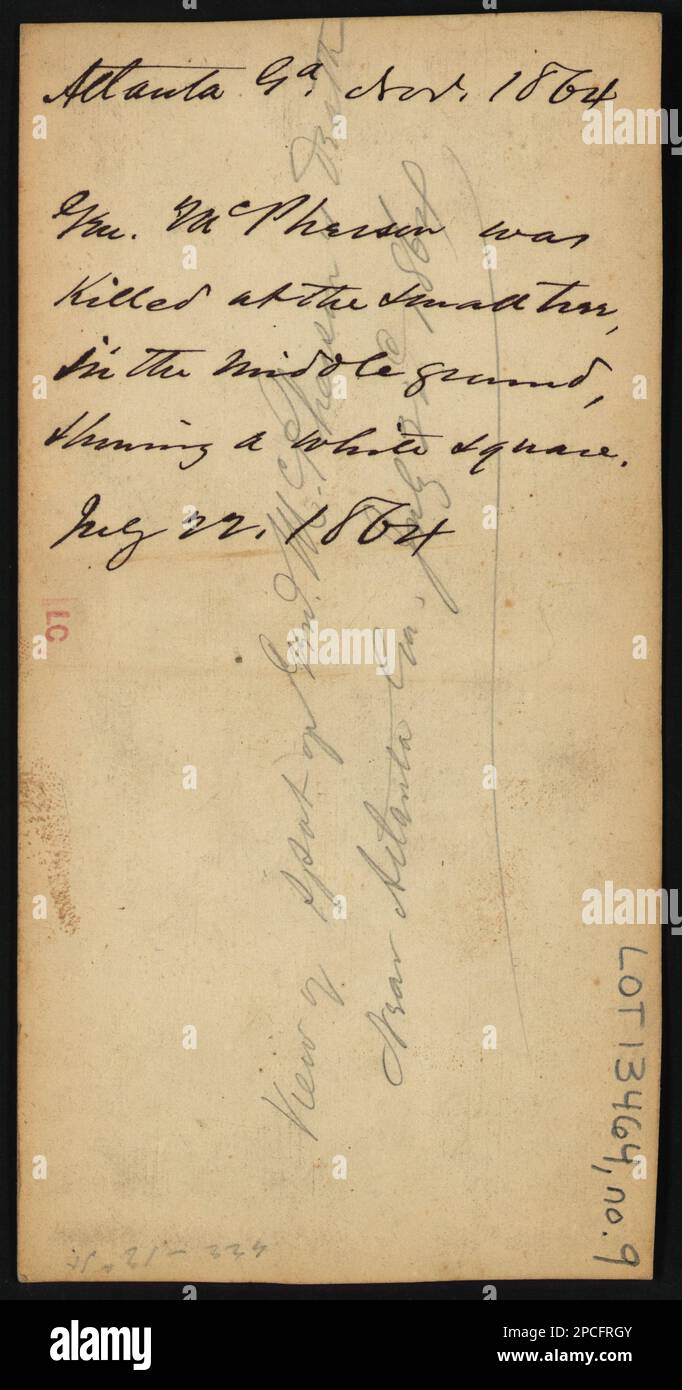 Atlanta Ga. Nov. 1864
Gen. McPherson was
killed at the small tree,
in the middle ground,
showing a white square.
July 22, 1864
View of spot of Genl. McPherson's Death
Near Atlanta Ga. July 22d 1864
LC
LOT 13464, no. 9
alamy
Image ID: 2PCFRGY
www.alamy.com